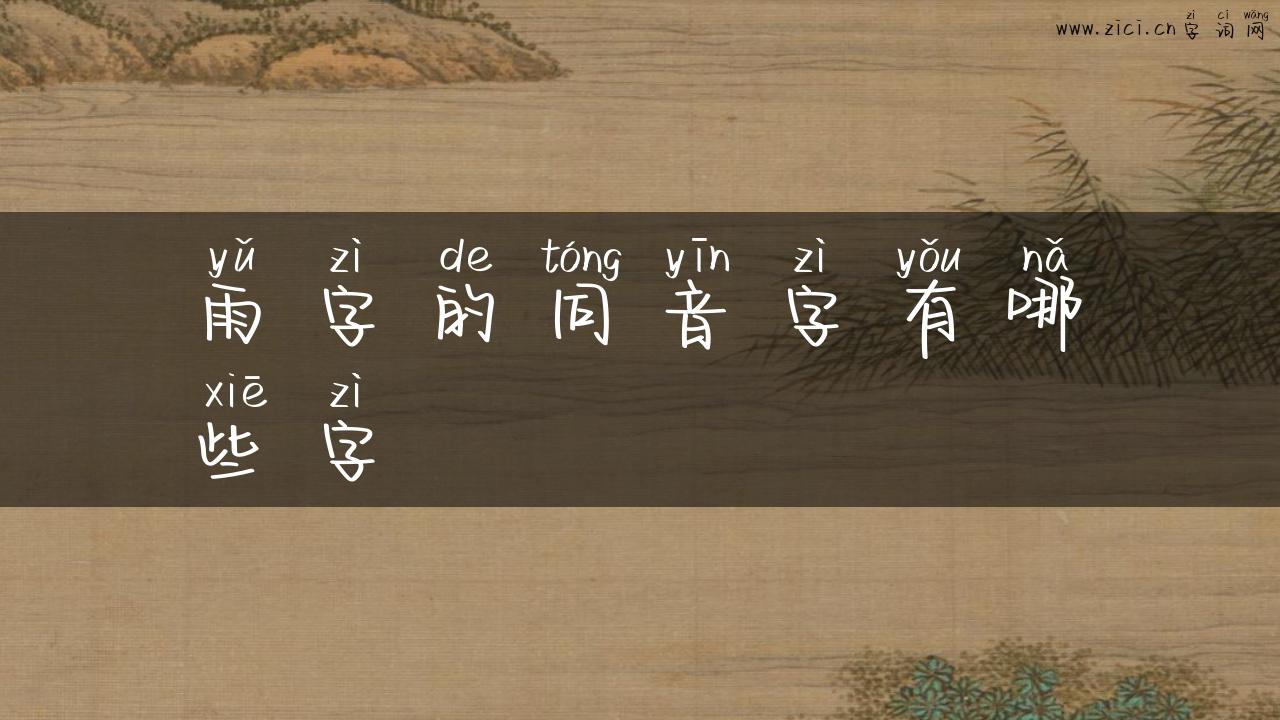 zì cí wǎng
www.zici.cn 字 词 网
yǔ zì de tóng yīn zì yǒu nǎ
雨 字 的 同 音 字 有 哪
xiē zì
些 字